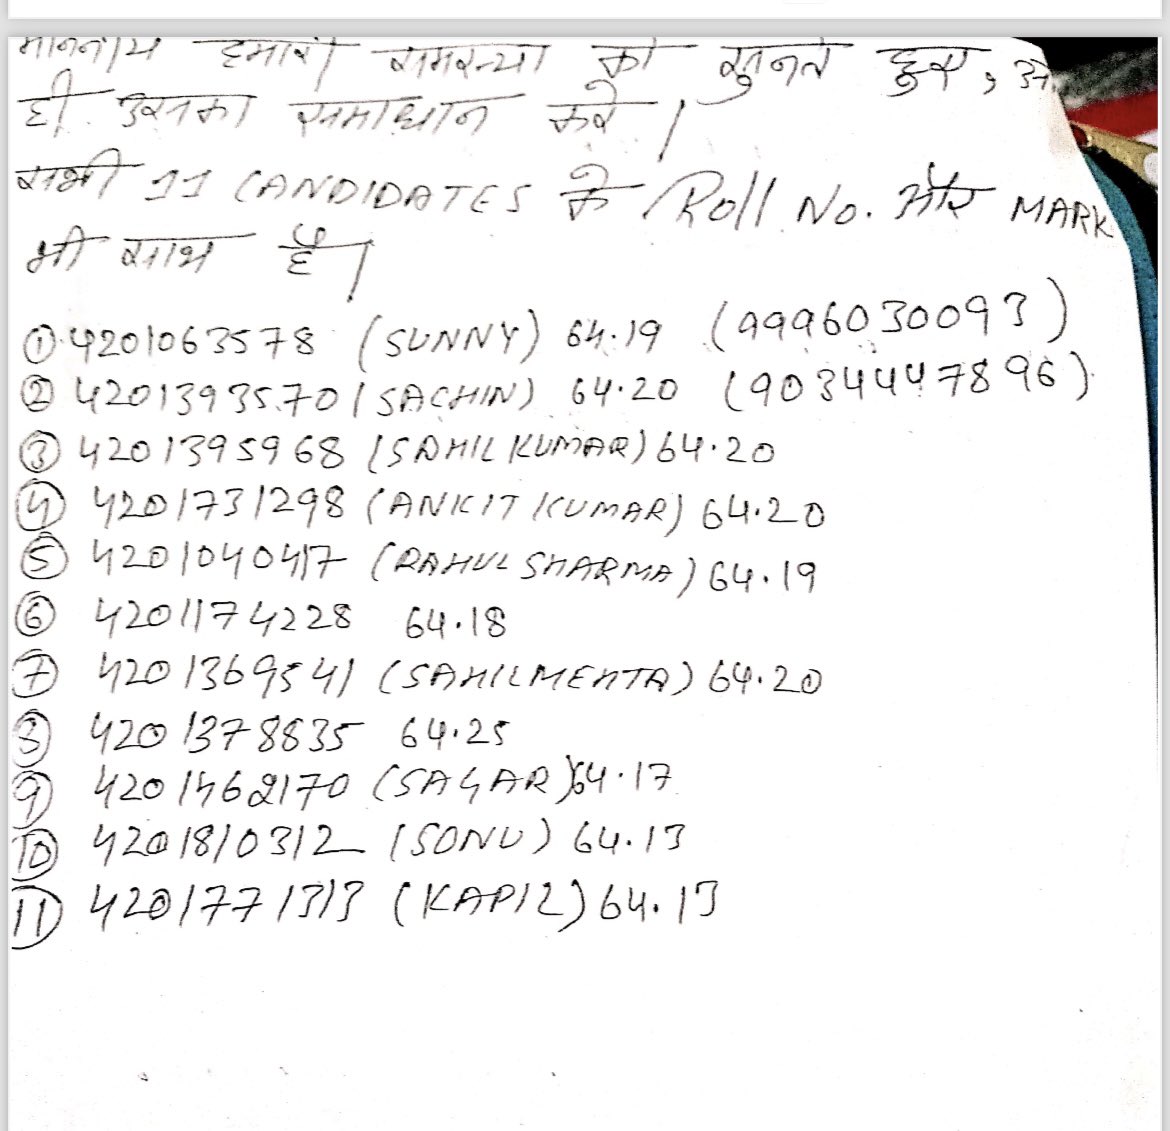 माननीय हमारी समस्या को सुनते हुए,
ही उसका समाधान करे।
सभी 11 CANDIDATES के Roll No. और MARK
भी साथ है।
① 4201063578 (SUNNY) 64.19 (9996030093)
② 4201393570 (SACHIN) 64.20 (9034447896)
③ 4201395968 (SAHIL KUMAR) 64.20
④ 4201731298 (ANKIT KUMAR) 64.20
⑤ 4201040417 (RAHUL SHARMA) 64.19
⑥ 4201174228 64.18
⑦ 4201369541 (SAHIL MEHTA) 64.20
⑧ 4201378835 64.25
⑨ 4201462170 (SAGAR) 64.17
⑩ 4201810312 (SONU) 64.13
⑪ 4201771313 (KAPIL) 64.13